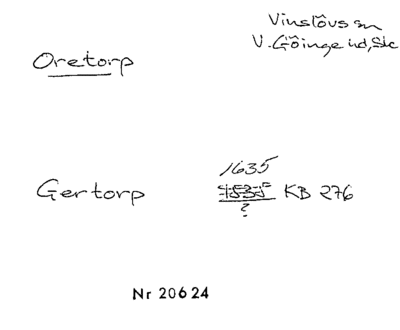 Vinslövs sn
V. Göinge hd, Sk
Oretorp
1635
Gertorp 1535 KB 276
?
Nr 20624